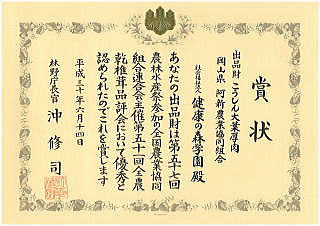 賞状
出品財 こうしん大葉厚肉
岡山県 阿新農業協同組合
社会福祉法人 健康の森学園 殿
あなたの出品財は第五十七回
農林水産祭参加の全国農業協同
組合連合会主催第五十一回全農
乾椎茸品評会において優秀と
認められたのでこれを賞します
平成三十年六月十四日
林野庁長官 沖 修司